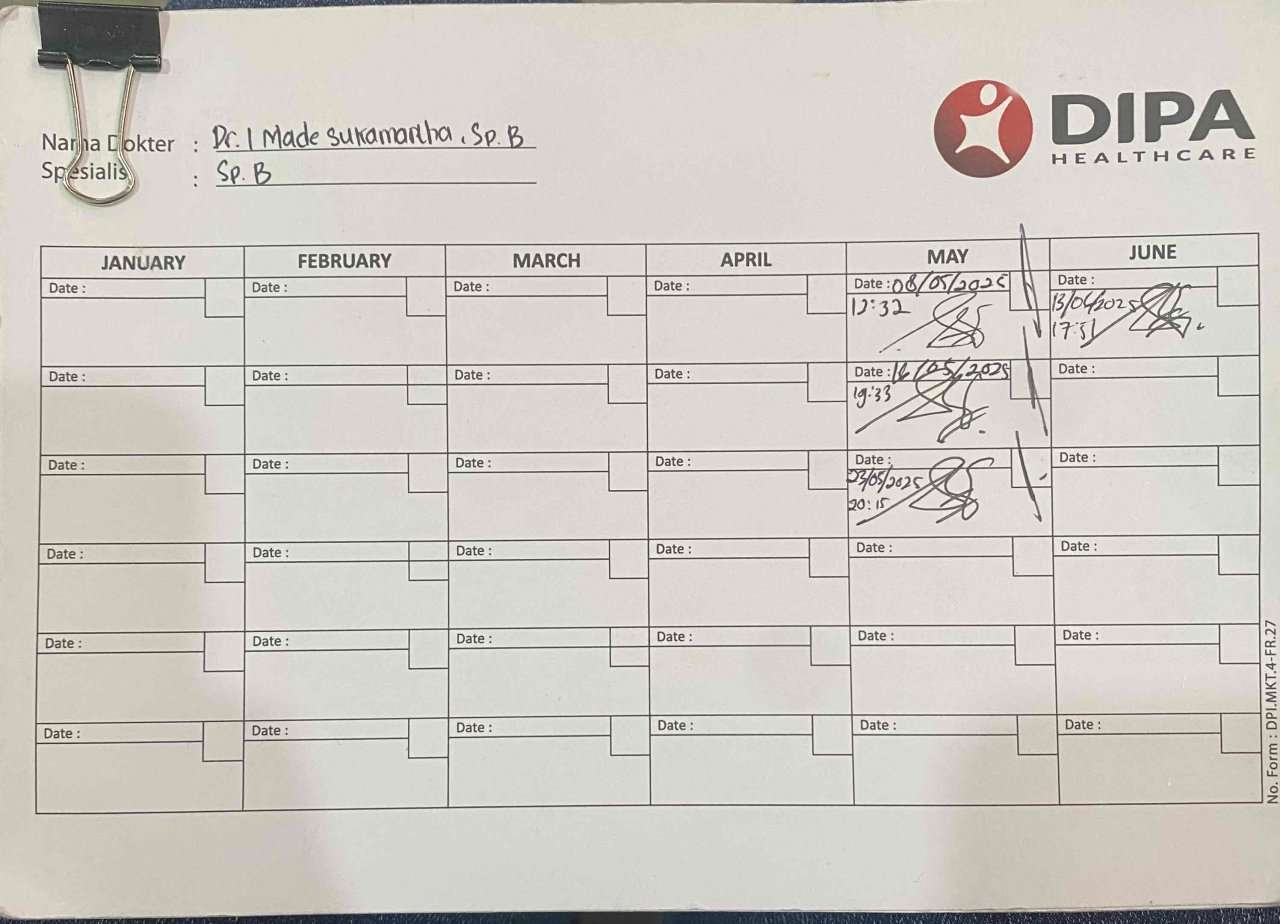 DIPA
HEALTHCARE
Nama Dokter : Dr. I Made Sukamartha, Sp. B
Spesialis : Sp. B
JANUARY FEBRUARY MARCH APRIL MAY JUNE
Date : Date : Date : Date : Date : 08/05/2025 Date :
12:32 13/06/2025
17:31
Date : Date : Date : Date : Date : 16/05/2025 Date :
19:33
Date : Date : Date : Date : Date : Date :
23/05/2025
20:15
Date : Date : Date : Date : Date : Date :
Date : Date : Date : Date : Date : Date :
Date : Date : Date : Date : Date : Date :
No. Form : DPI.MKT.4-FR.27